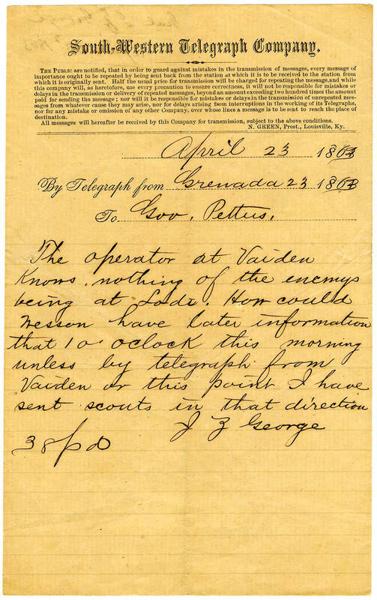 South-Western Telegraph Company.
THE PUBLIC are notified, that in order to guard against mistakes in the transmission of messages, every message of
importance ought to be repeated by being sent back from the station at which it is to be received to the station from
which it is originally sent. Half the usual price for transmission will be charged for repeating the message, and while
this company will, as heretofore, use every precaution to ensure correctness, it will not be responsible for mistakes or
delays in the transmission or delivery of repeated messages, beyond an amount exceeding two hundred times the amount
paid for sending the message; nor will it be responsible for mistakes or delays in the transmission of unrepeated mess-
ages from whatever cause they may arise, nor for delays arising from interruptions in the working of its Telegraphs,
nor for any mistake or omission of any other Company over whose lines a message is to be sent to reach the place of
destination.
All messages will hereafter be received by this Company for transmission, subject to the above conditions.
N. GREEN, Prest., Louisville, Ky.
April 23 1863
By Telegraph from Grenada 23 1863
To Gov. Pettus.
The operator at Vaiden
Knows nothing of the enemys
being at Lodi. How could
Wesson have later information
that 10 oclock this morning
unless by telegraph from
Vaiden or this point I have
sent scouts in that direction
J Z George
38 pd